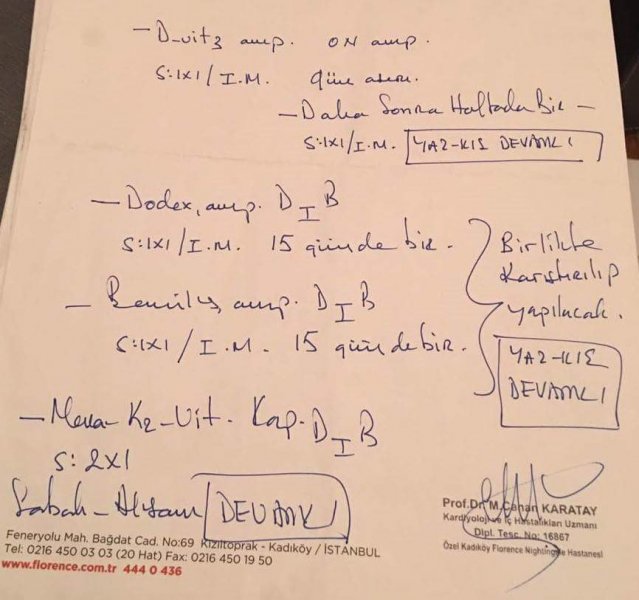 - D-vit3 amp. ON amp.
S: 1x1 / I.M. gün aşırı.
- Daha Sonra Haftada Bir -
S: 1x1/I.M. YAZ-KIŞ DEVAMLI
- Dodex, amp. D I B
S: 1x1 / I.M. 15 günde bir.
- Bemiks, amp. D I B
S: 1x1 / I.M. 15 günde bir.
Birlikte
Karıştırılıp
yapılacak.
YAZ-KIŞ
DEVAMLI
- K2-Vit. Kap. D I B
S: 2x1
Sabah - Akşam DEVAMLI
Prof.Dr. M.Canan KARATAY
Kardiyoloji ve İç Hastalıkları Uzmanı
Dipl. Tesc. No: 16867
Özel Kadıköy Florence Nightingale Hastanesi
Feneryolu Mah. Bağdat Cad. No:69 Kızıltoprak - Kadıköy / İSTANBUL
Tel: 0216 450 03 03 (20 Hat) Fax: 0216 450 19 50
www.florence.com.tr 444 0 436